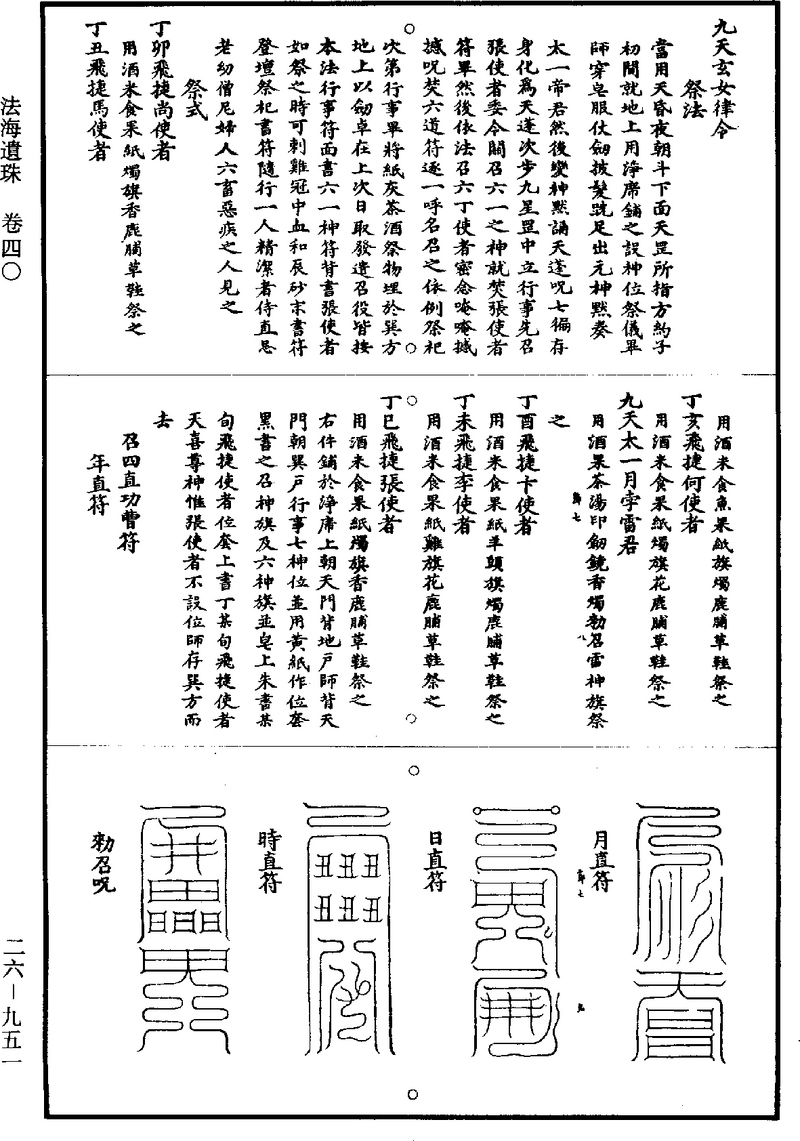 九天玄女律令
祭法
當用天昏夜朝斗下面天罡所指方約子
初間就地上用淨席鋪之設神位祭儀畢
師穿皂服仗劒披髮跣足出元神默奏
太一帝君然後變神默誦天蓬呪七徧存
身化爲天蓬次步九星罡中立行事先召
張使者委令關召六一之神就焚張使者
符畢然後依法召六丁使者密念唵唵撼
撼呪焚六道符逐一呼名召之依例祭祀
次第行事畢將紙灰茶酒祭物埋於巽方
地上以劒卓在上次日取發遣召役皆按
本法行事符面書六一神符背書張使者
如祭之時可刺雞冠中血和辰砂末書符
登壇祭祀書符隨行一人精潔者侍直忌
老幼僧尼婦人六畜惡疾之人見之
祭式
丁卯飛捷尚使者
用酒米食果紙燭旗香鹿脯草鞋祭之
丁丑飛捷馬使者
用酒米食魚果紙旗燭鹿脯草鞋祭之
丁亥飛捷何使者
用酒米食果紙燭旗花鹿脯草鞋祭之
九天太一月孛雷君
用酒果茶湯印劒鏡香燭勑召雷神旗祭
之
丁酉飛捷卞使者
用酒米食果紙羊頭旗燭鹿脯草鞋祭之
丁未飛捷李使者
用酒米食果紙雞旗花鹿脯草鞋祭之
丁巳飛捷張使者
用酒米食果紙燭旗香鹿脯草鞋祭之
右件鋪於淨席上朝天門背地戶師背天
門朝巽戶行事七神位並用黃紙作位套
黑書之召神旗及六神旗並皂上朱書某
旬飛捷使者位套上書丁某旬飛捷使者
天喜尊神惟張使者不設位師存巽方而
去
召四直功曹符
年直符
月直符
日直符
時直符
勑召呪
法海遺珠 卷四〇
二六—九五一